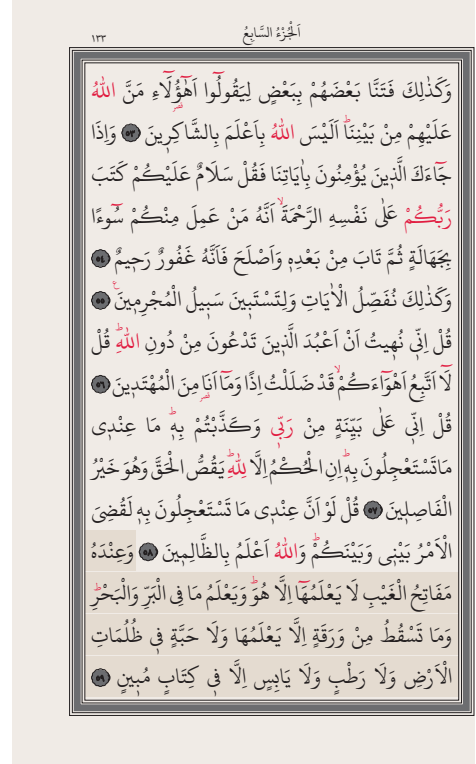 ١٣٣
اَلْجُزْءُ السَّابِعُ
وَكَذٰلِكَ فَتَنَّا بَعْضَهُمْ بِبَعْضٍ لِيَقُولُٓوا اَهٰٓؤُ۬لَٓاءِ مَنَّ اللّٰهُ
عَلَيْهِمْ مِنْ بَيْنِنَاۜ اَلَيْسَ اللّٰهُ بِاَعْلَمَ بِالشَّاكِر۪ينَ ﴿٥٣﴾ وَاِذَا
جَٓاءَكَ الَّذ۪ينَ يُؤْمِنُونَ بِاٰيَاتِنَا فَقُلْ سَلَامٌ عَلَيْكُمْ كَتَبَ
رَبُّكُمْ عَلٰى نَفْسِهِ الرَّحْمَةَۙ اَنَّهُ مَنْ عَمِلَ مِنْكُمْ سُٓوءًا
بِجَهَالَةٍ ثُمَّ تَابَ مِنْ بَعْدِه۪ وَاَصْلَحَ فَاَنَّهُ غَفُورٌ رَح۪يمٌ ﴿٥٤﴾
وَكَذٰلِكَ نُفَصِّلُ الْاٰيَاتِ وَلِتَسْتَب۪ينَ سَب۪يلُ الْمُجْرِم۪ينَ۟ ﴿٥٥﴾
قُلْ اِنّ۪ي نُه۪يتُ اَنْ اَعْبُدَ الَّذ۪ينَ تَدْعُونَ مِنْ دُونِ اللّٰهِۜ قُلْ
لَٓا اَتَّبِعُ اَهْوَٓاءَكُمْۙ قَدْ ضَلَلْتُ اِذًا وَمَٓا اَنَا۬ مِنَ الْمُهْتَد۪ينَ ﴿٥٦﴾
قُلْ اِنّ۪ي عَلٰى بَيِّنَةٍ مِنْ رَبّ۪ي وَكَذَّبْتُمْ بِه۪ۜ مَا عِنْد۪ي
مَا تَسْتَعْجِلُونَ بِه۪ۜ اِنِ الْحُكْمُ اِلَّا لِلّٰهِۜ يَقُصُّ الْحَقَّ وَهُوَ خَيْرُ
الْفَاصِل۪ينَ ﴿٥٧﴾ قُلْ لَوْ اَنَّ عِنْد۪ي مَا تَسْتَعْجِلُونَ بِه۪ لَقُضِيَ
الْاَمْرُ بَيْن۪ي وَبَيْنَكُمْۜ وَاللّٰهُ اَعْلَمُ بِالظَّالِم۪ينَ ﴿٥٨﴾ وَعِنْدَهُ
مَفَاتِحُ الْغَيْبِ لَا يَعْلَمُهَٓا اِلَّا هُوَۜ وَيَعْلَمُ مَا فِي الْبَرِّ وَالْبَحْرِۜ
وَمَا تَسْقُطُ مِنْ وَرَقَةٍ اِلَّا يَعْلَمُهَا وَلَا حَبَّةٍ ف۪ي ظُلُمَاتِ
الْاَرْضِ وَلَا رَطْبٍ وَلَا يَابِسٍ اِلَّا ف۪ي كِتَابٍ مُب۪ينٍ ﴿٥٩﴾